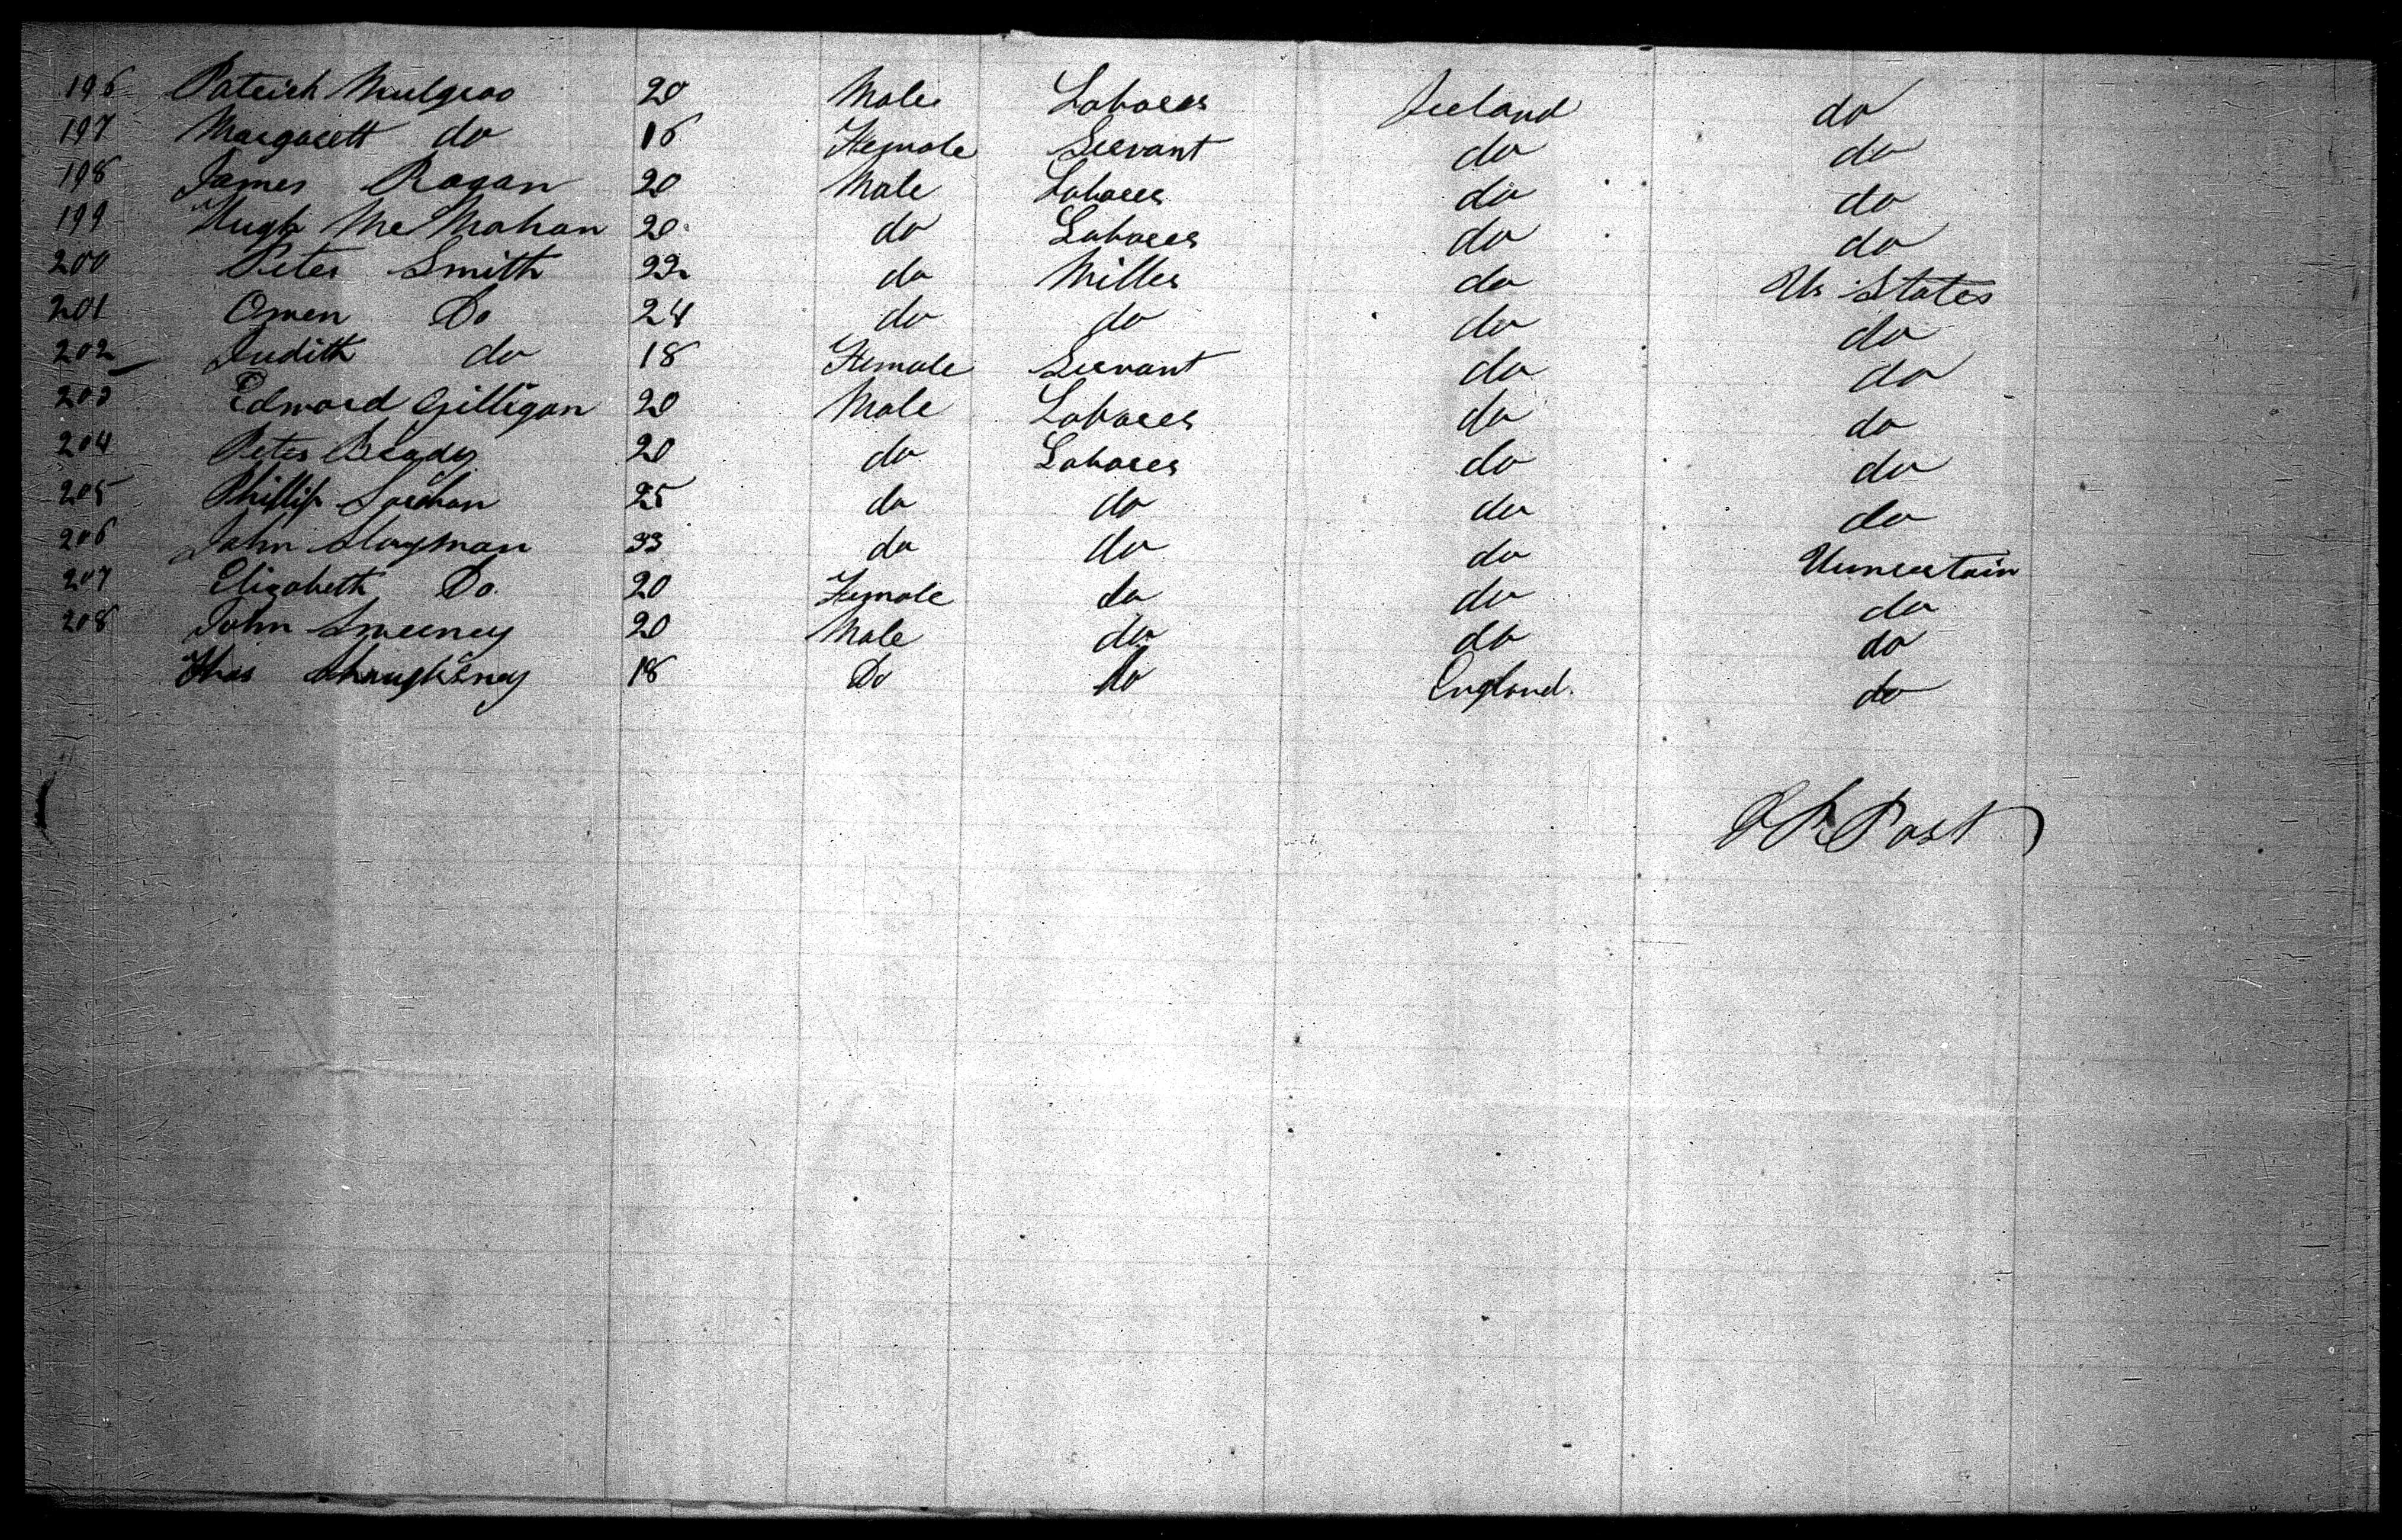 196 Patrick Mulgroo 20 Male Laborer Ireland do
197 Margarett do 16 Female Servant do do
198 James Ragan 20 Male Laborer do do
199 Hugh McMahan 20 do Laborer do do
200 Peter Smith 22 do Miller do U. States
201 Owen Do 24 do do do do
202 Judith do 18 Female Servant do do
203 Edward Gilligan 20 Male Laborer do do
204 Peter Brady 20 do Laborer do do
205 Phillip 25 do do do do
206 John Slayman 33 do do do Unncertain
207 Elizabeth Do. 20 Female do do do
208 John Sweeney 20 Male do do do
Thos 18 Do do England. do
Post